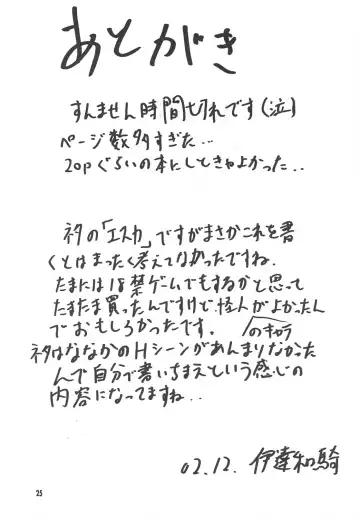 あとがき
すんません時間切れです(泣)
ページ数多すぎた…
20pぐらいの本にしときゃよかった..
ネタの「エスカ」ですがまさかこれを書
くとはまったく考えてなかったですね.
たまには18禁ゲームでもするかと思って
たまたま買ったんですけど、怪人がよかったん
のキャラ
でおもしろかったです。
ネタはななかのHシーンがあんまりなかった
んで自分で書いちまえという感じの
内容になってますね..
02.12. 伊達和騎
25